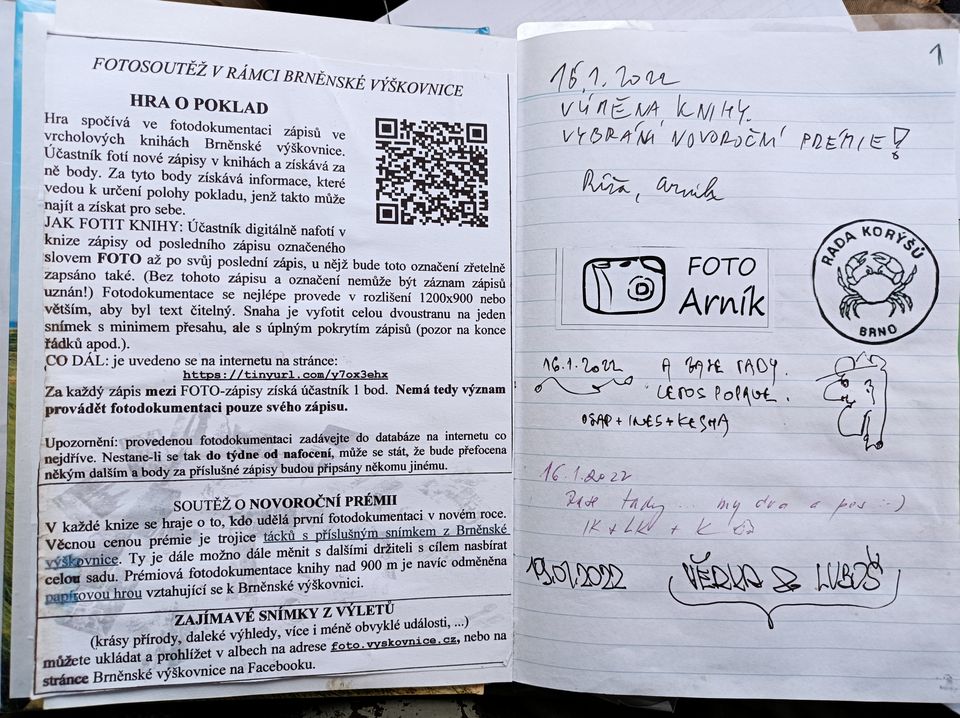 FOTOSOUTĚŽ V RÁMCI BRNĚNSKÉ VÝŠKOVNICE
HRA O POKLAD
Hra spočívá ve fotodokumentaci zápisů ve
vrcholových knihách Brněnské výškovnice.
Účastník fotí nové zápisy v knihách a získává za
ně body. Za tyto body získává informace, které
vedou k určení polohy pokladu, jenž takto může
najít a získat pro sebe.
JAK FOTIT KNIHY: Účastník digitálně nafotí v
knize zápisy od posledního zápisu označeného
slovem FOTO až po svůj poslední zápis, u nějž bude toto označení zřetelně
zapsáno také. (Bez tohoto zápisu a označení nemůže být záznam zápisů
uznán!) Fotodokumentace se nejlépe provede v rozlišení 1200x900 nebo
větším, aby byl text čitelný. Snaha je vyfotit celou dvoustranu na jeden
snímek s minimem přesahu, ale s úplným pokrytím zápisů (pozor na konce
řádků apod.).
CO DÁL: je uvedeno se na internetu na stránce:
https://tinyurl.com/y7ox3ehx
Za každý zápis mezi FOTO-zápisy získá účastník 1 bod. Nemá tedy význam
provádět fotodokumentaci pouze svého zápisu.
Upozornění: provedenou fotodokumentaci zadávejte do databáze na internetu co
nejdříve. Nestane-li se tak do týdne od nafocení, může se stát, že bude přefocena
někým dalším a body za příslušné zápisy budou připsány někomu jinému.
SOUTĚŽ O NOVOROČNÍ PRÉMII
V každé knize se hraje o to, kdo udělá první fotodokumentaci v novém roce.
Věcnou cenou prémie je trojice tácků s příslušným snímkem z Brněnské
výškovnice. Ty je dále možno dále měnit s dalšími držiteli s cílem nasbírat
celou sadu. Prémiová fotodokumentace knihy nad 900 m je navíc odměněna
papírovou hrou vztahující se k Brněnské výškovnici.
ZAJÍMAVÉ SNÍMKY Z VÝLETŮ
(krásy přírody, daleké výhledy, více i méně obvyklé události, ...)
můžete ukládat a prohlížet v albech na adrese foto.vyskovnice.cz, nebo na
stránce Brněnské výškovnice na Facebooku.
1
16.1.2022
VÝMĚNA KNIHY.
VYBRÁNÍ NOVOROČNÍ PRÉMIE!
Růža, Arník
FOTO
Arník
RADA KORÝŠŮ
BRNO
16.1.2022 A ZASE TADY.
LETOS POPRVÉ.
+ INES +
16.1.2022
Zase tady... my dva a pes :-)
IK + LK + K
19.01.2022 VĚRKA & LUBOŠ